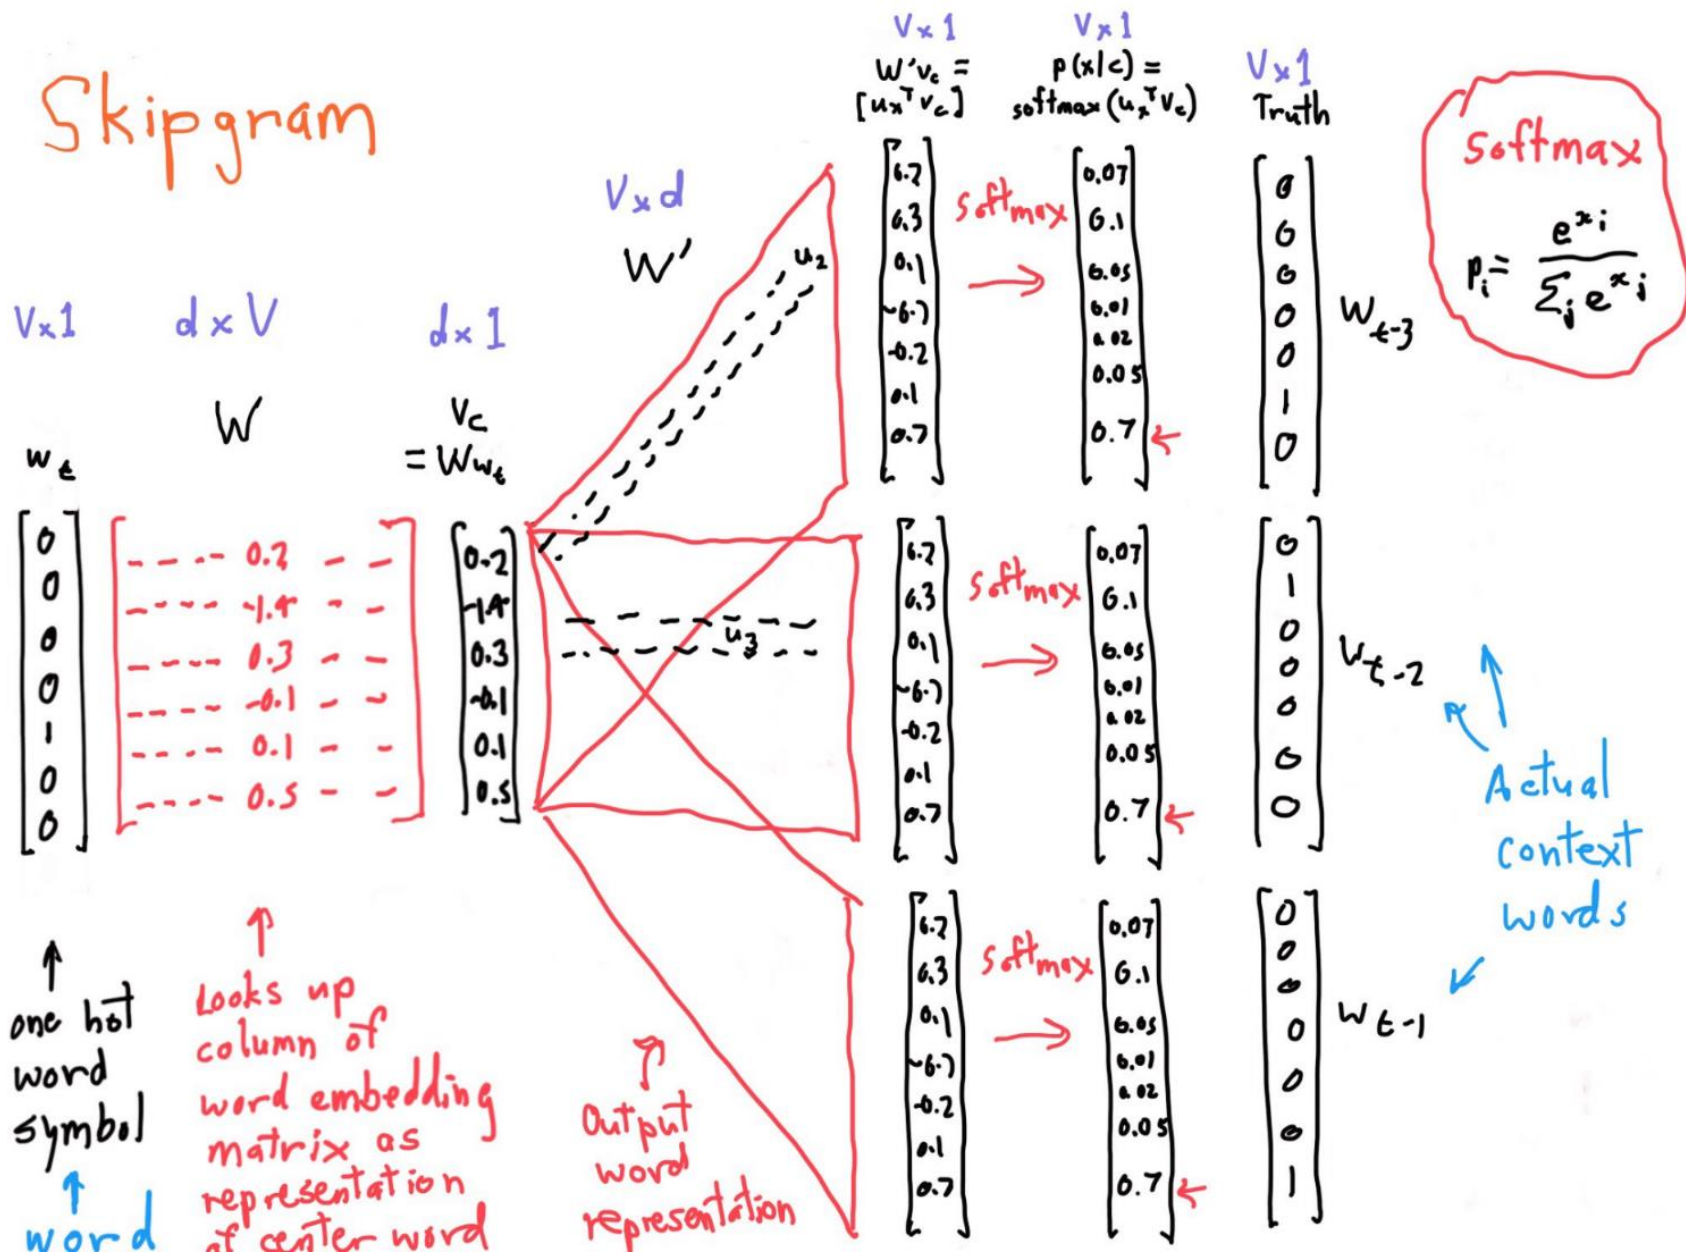 Skipgram
V×1
d×V
d×1
V×d
V×1
V×1
V×1
W
W'
w_t
v_c
= Ww_t
W'v_c =
[u_x^T v_c]
p(x|c) =
softmax(u_x^T v_c)
Truth
softmax
p_i = e^x_i / Σ_j e^x_j
0
0
0
0
1
0
0
---- 0.2 --
---- -1.4 --
---- 0.3 --
---- -0.1 --
---- 0.1 --
---- 0.5 --
0.2
-1.4
0.3
-0.1
0.1
0.5
u_2
u_3
0.3
0.1
-0.2
0.1
0.7
softmax
0.07
0.1
0.05
0.01
0.02
0.05
0.7
0
0
0
0
0
1
0
w_t-3
0.3
0.1
-0.2
0.1
0.7
softmax
0.07
0.1
0.05
0.01
0.02
0.05
0.7
0
1
0
0
0
0
0
w_t-2
0.3
0.1
-0.2
0.1
0.7
softmax
0.07
0.1
0.05
0.01
0.02
0.05
0.7
0
0
0
0
0
0
1
w_t-1
Actual
context
words
one hot
word
symbol
word
Looks up
column of
word embedding
matrix as
representation
of center word
Output
word
representation